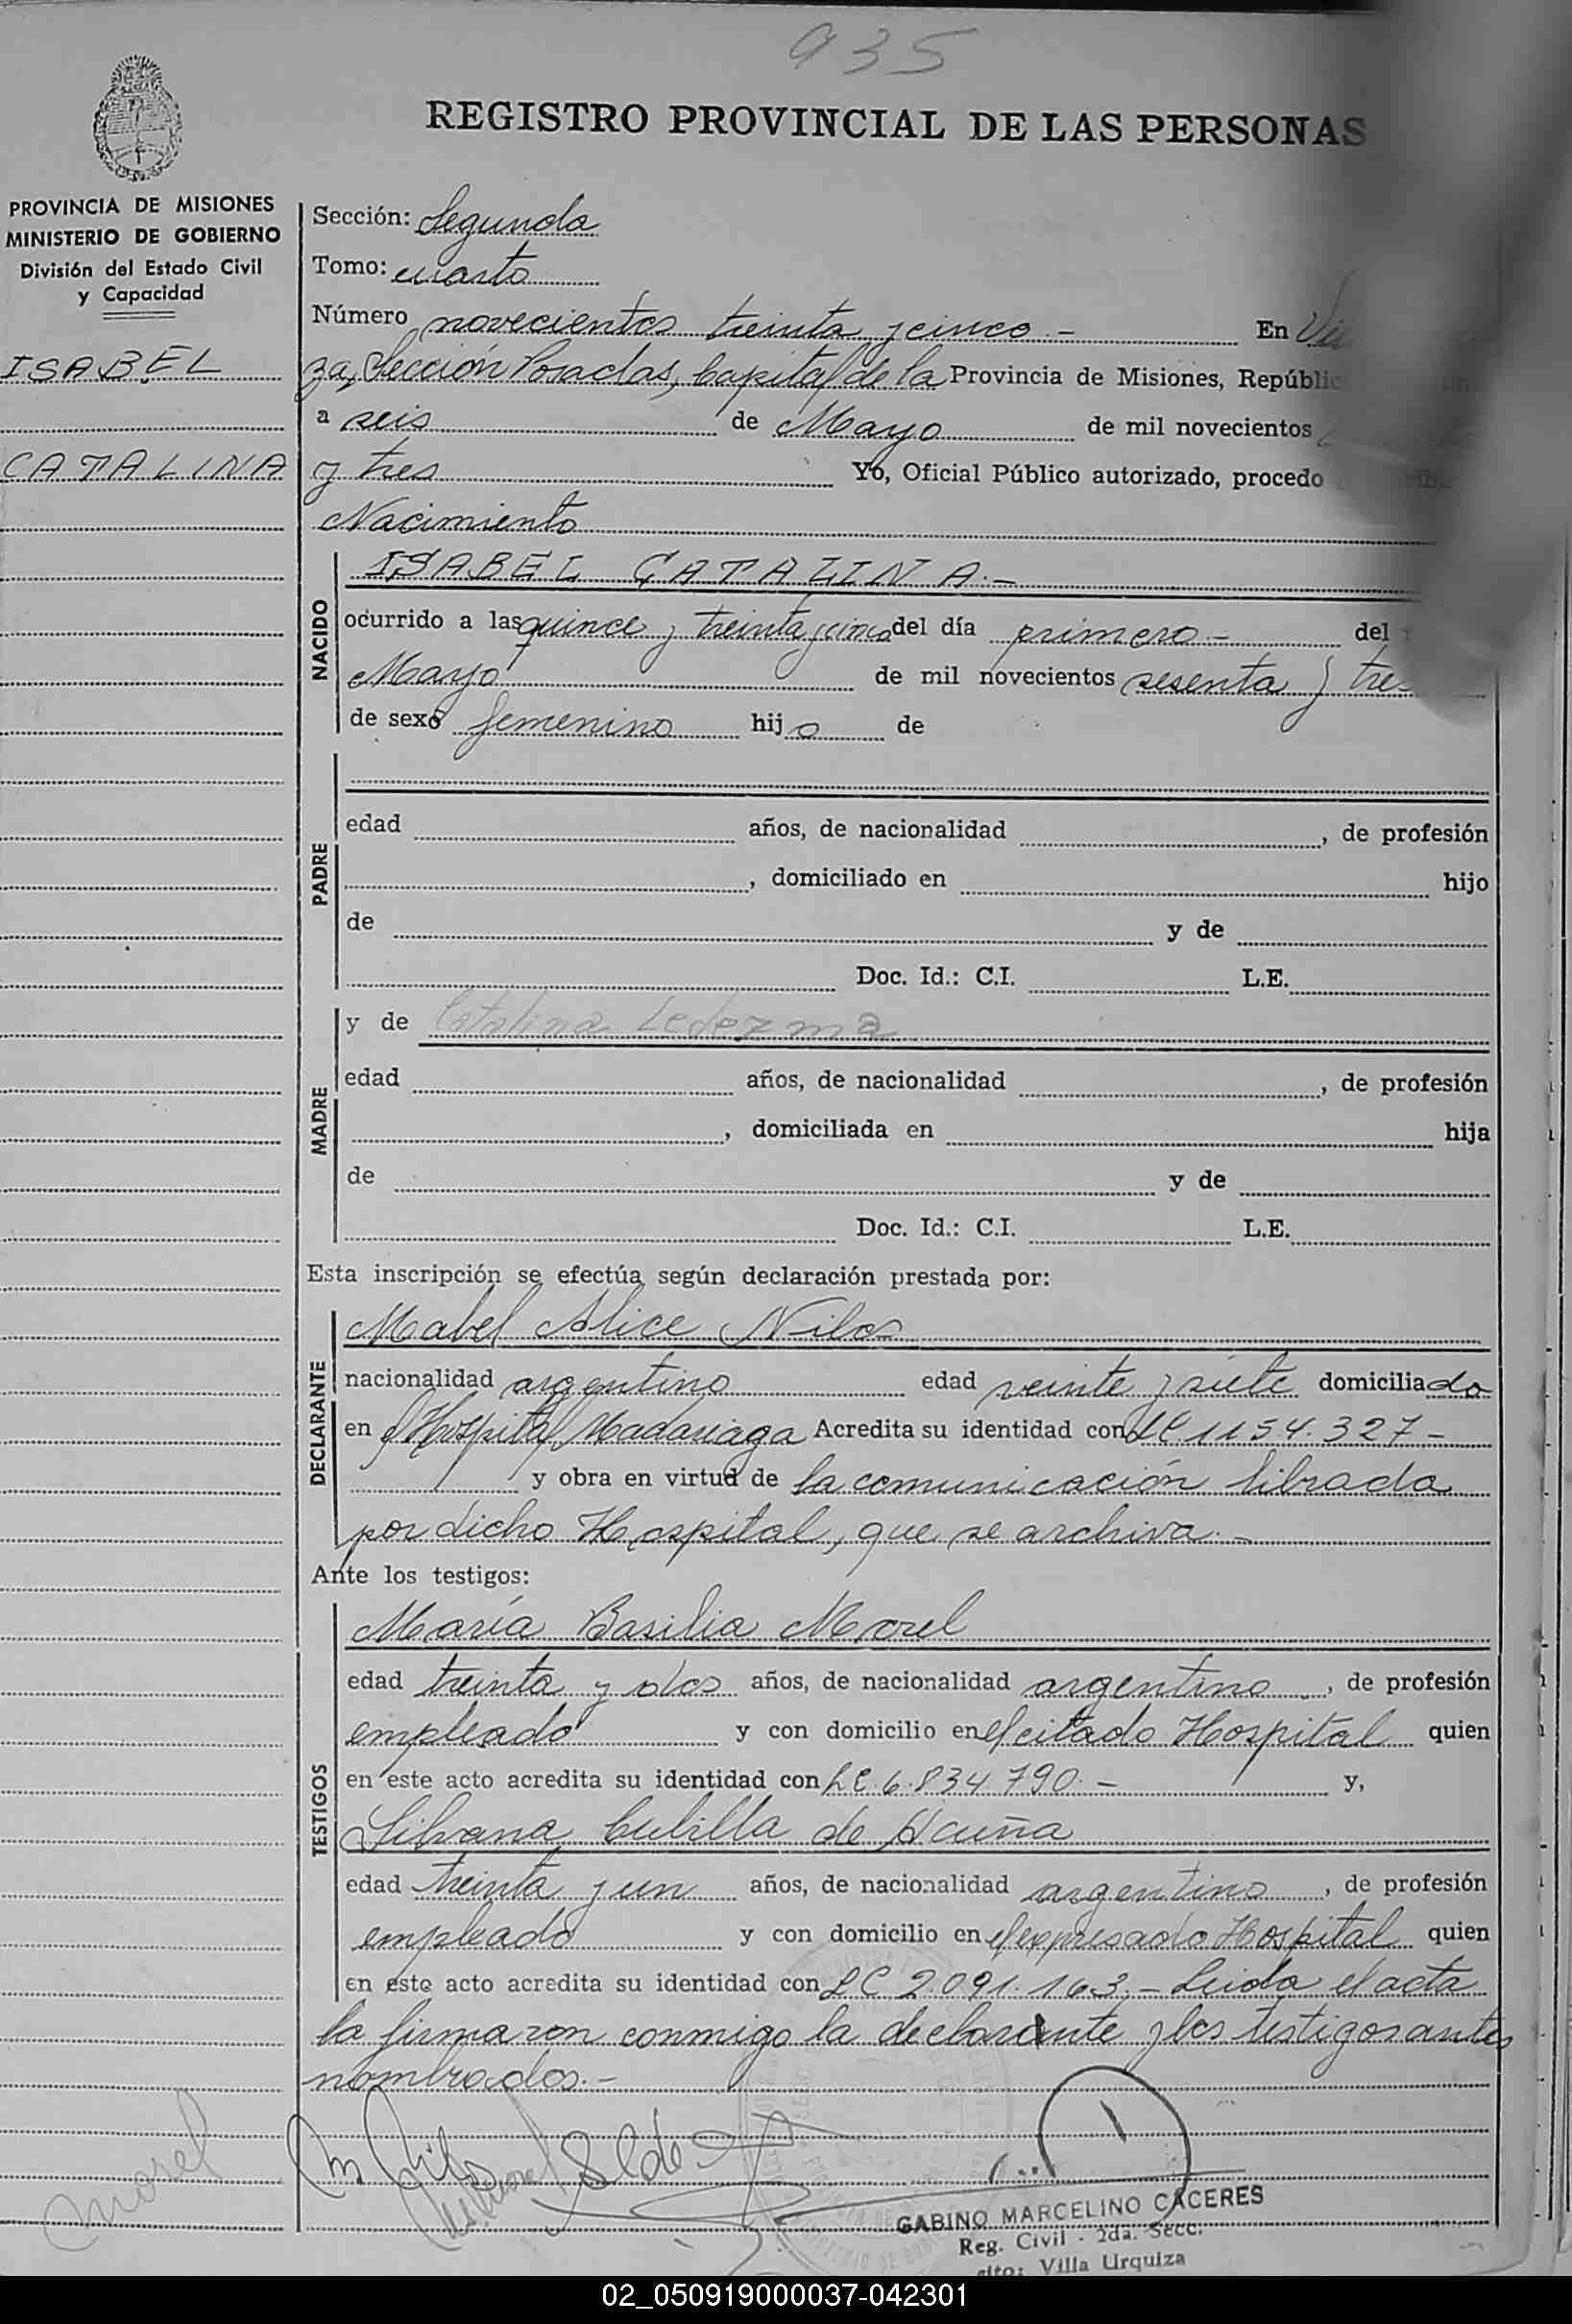 935
REGISTRO PROVINCIAL DE LAS PERSONAS
PROVINCIA DE MISIONES
MINISTERIO DE GOBIERNO
División del Estado Civil
y Capacidad
ISABEL
CATALINA
Sección: Segunda
Tomo: cuarto
Número novecientos treinta y cinco.- En
za, Sección Posadas, Capital de la Provincia de Misiones,
a seis de Mayo de mil novecientos
y tres Yo, Oficial Público autorizado, procedo
Nacimiento
NACIDO
ISABEL CATALINA.-
ocurrido a las quince y treinta y cinco del día primero.- del
Mayo de mil novecientos sesenta y
de sexo femenino hijo de
PADRE
edad años, de nacionalidad , de profesión
, domiciliado en hijo
de y de
Doc. Id.: C.I. L.E.
MADRE
y de Catalina Ledezma
edad años, de nacionalidad , de profesión
, domiciliada en hija
de y de
Doc. Id.: C.I. L.E.
Esta inscripción se efectúa según declaración prestada por:
DECLARANTE
Mabel Alice Nilos
nacionalidad argentino edad veinte y siete domiciliado
en el Hospital Madariaga Acredita su identidad con LC 1154.327-
y obra en virtud de la comunicación librada
por dicho Hospital, que se archiva.-
Ante los testigos:
TESTIGOS
María Basilia Morel
edad treinta y dos años, de nacionalidad argentino, de profesión
empleado y con domicilio en el citado Hospital quien
en este acto acredita su identidad con LC.6.834.790.- y,
Silvana Cubilla de Acuña
edad treinta y un años, de nacionalidad argentino, de profesión
empleado y con domicilio en el expresado Hospital quien
en este acto acredita su identidad con LC 2.091.163.- Leida el acta
la firmaron conmigo la declarante y los testigos antes
nombrados.-
Morel
GABINO MARCELINO CACERES
Reg. Civil - 2da. Secc.
Villa Urquiza
02_050919000037-042301